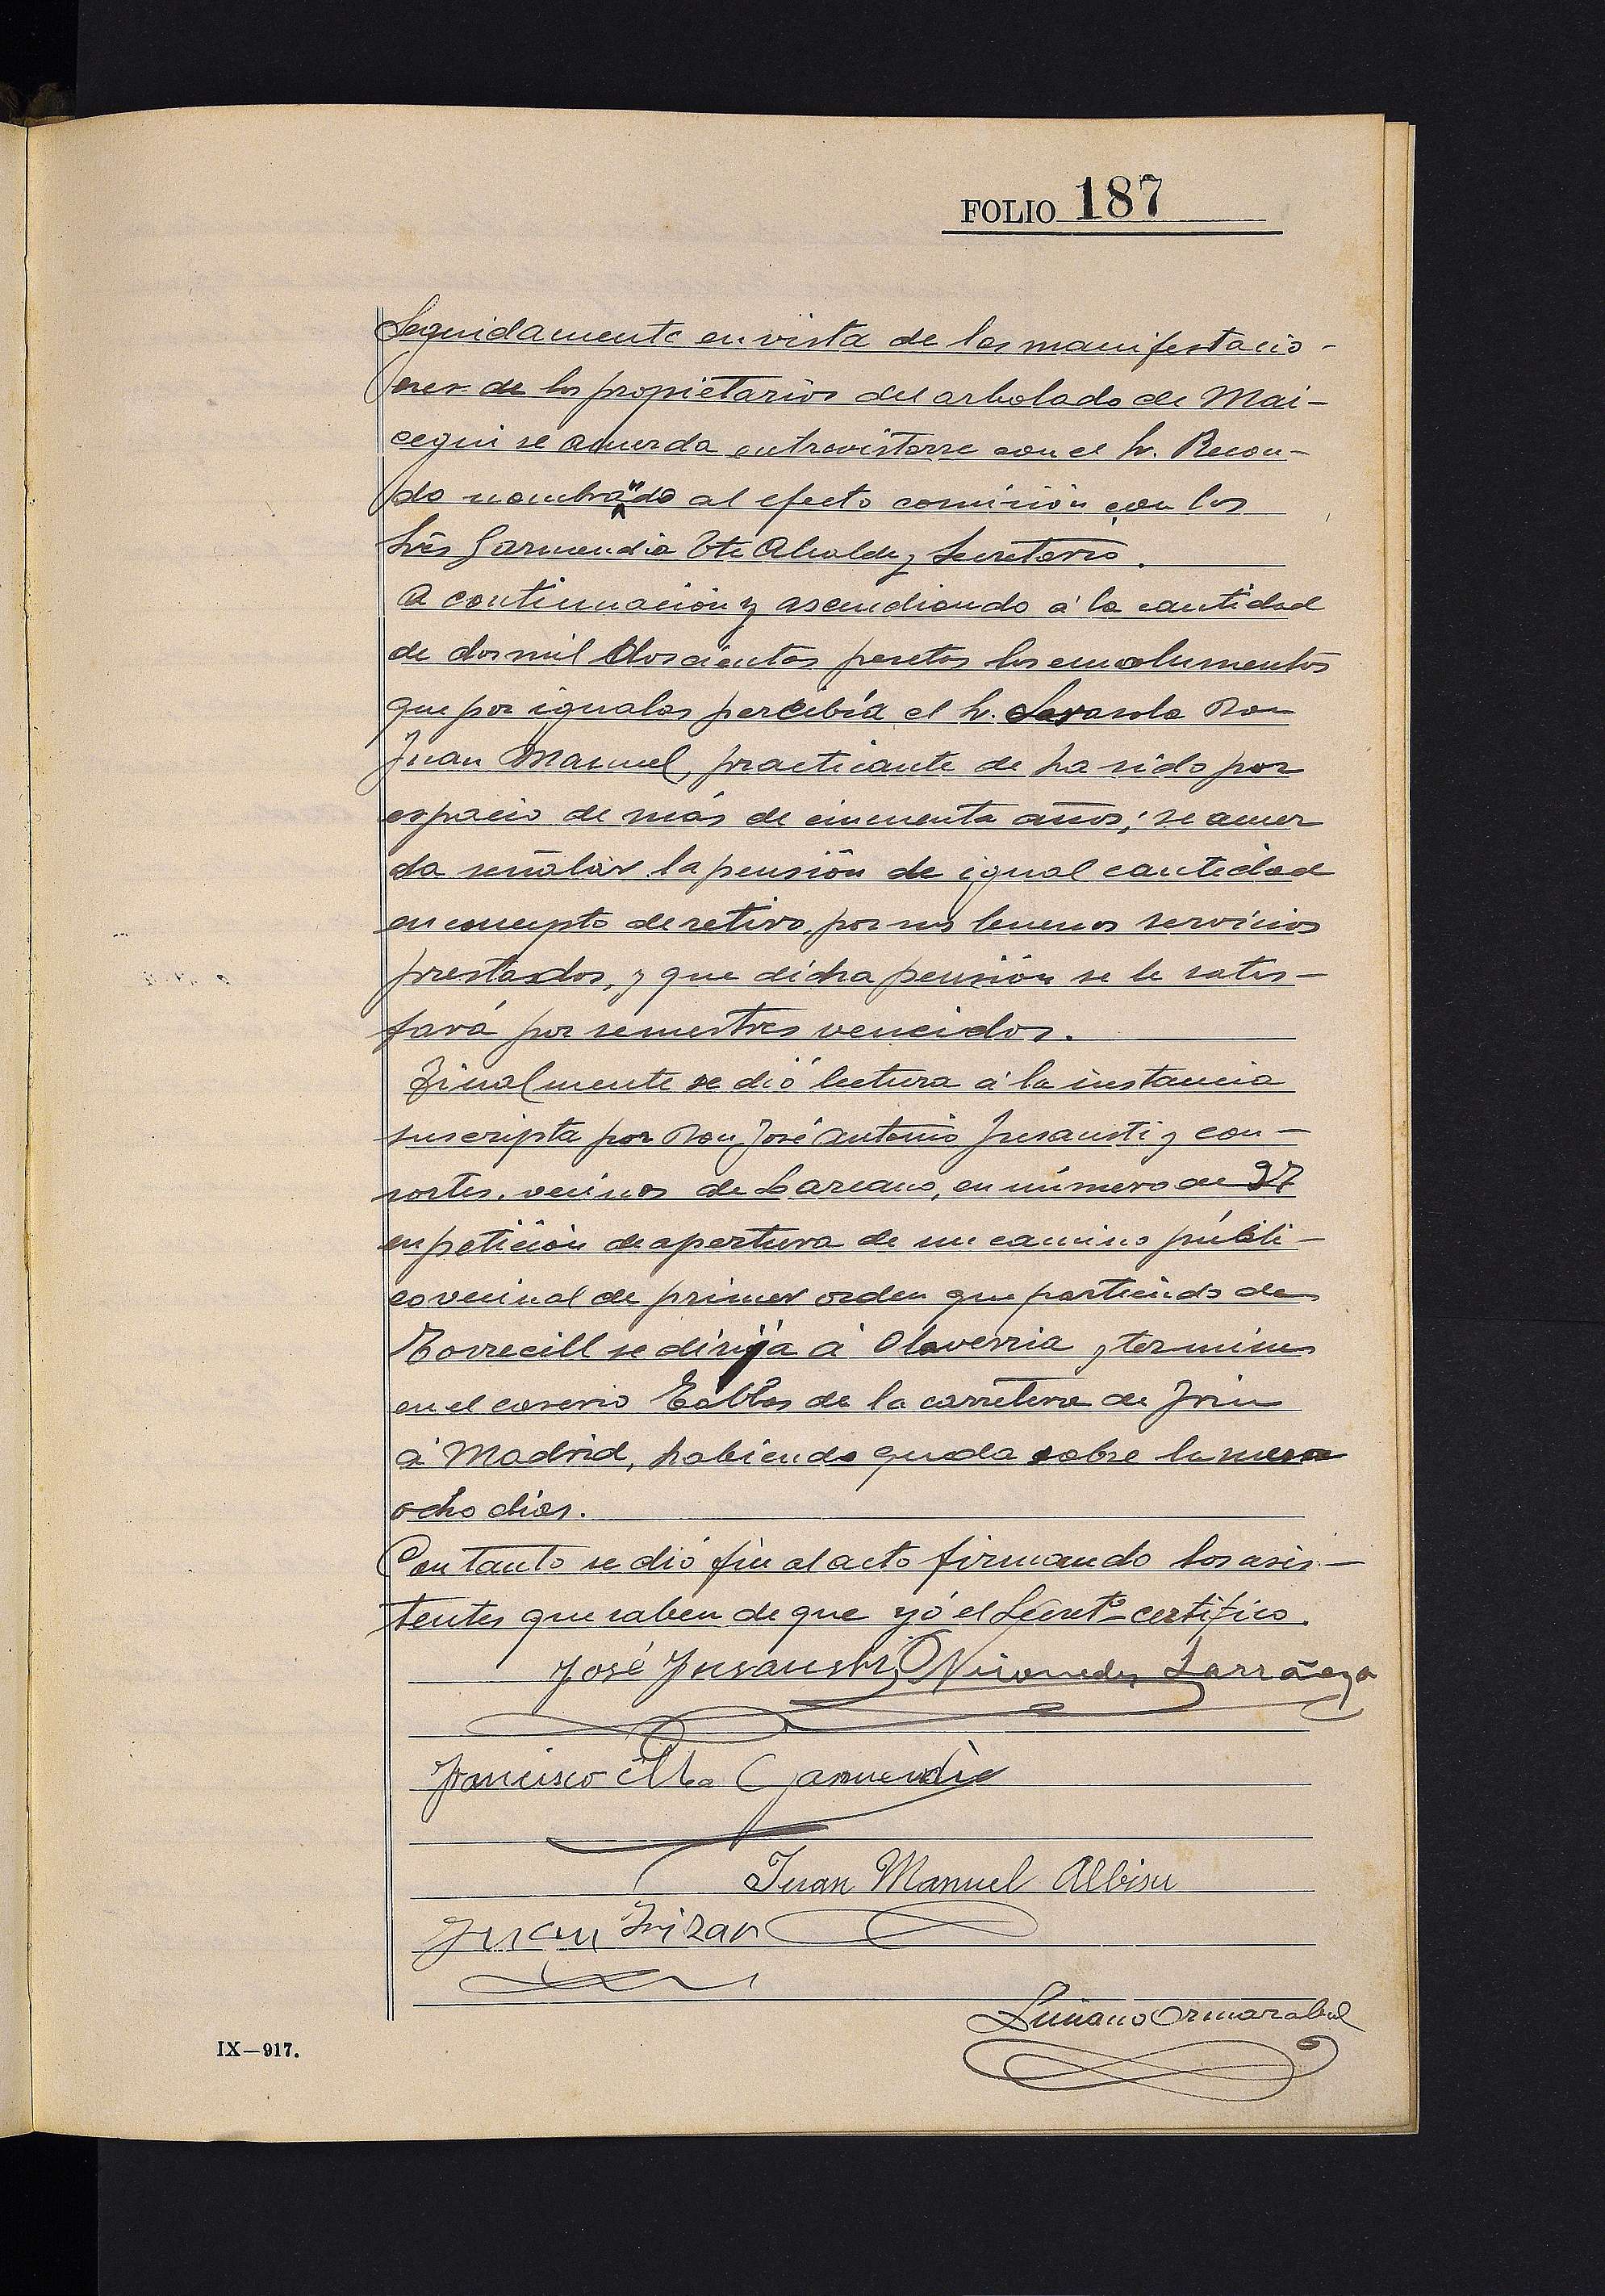 FOLIO 187
Seguidamente en vista de las manifestacio-
nes de los propietarios del arbolado de Mai-
cegui se acuerda entrevistarse con el Sr. Recon-
do nombrando al efecto comisión con los
Srés Garmendia Tte Alcalde y Secretario.
A continuación y ascendiendo á la cantidad
de dos mil doscientas pesetas los emolumentos
que por igualas percibía el Sr. Sarasola Don
Juan Manuel, practicante de ha sido por
espacio de más de cincuenta años; se acuer
da señalar la pensión de igual cantidad
en concepto de retiro por sus buenos servicios
prestados, y que dicha pensión se le satis-
fará por semestres vencidos.
Finalmente se dió lectura á la instancia
suscripta por Don José Antonio Insausti y con-
sortes. vecinos de Lazcano, en número de 37
en petición de apertura de un camino públi-
co vecinal de primer orden que partiendo de
Torrecill se dirija á Olaverria y termine
en el caserio de la carretera de Irún
á Madrid, habiendo queda sobre la mesa
ocho dias.
Con tanto se dió fin al acto firmando los asis-
tentes que saben de que yó el Secretº certifico.
José Insausti Nicomedes Larrañaga
Francisco Mª Garmendia
Juan Manuel Albisu
Juan Irizar
Luciano Ormazabal
IX—917.